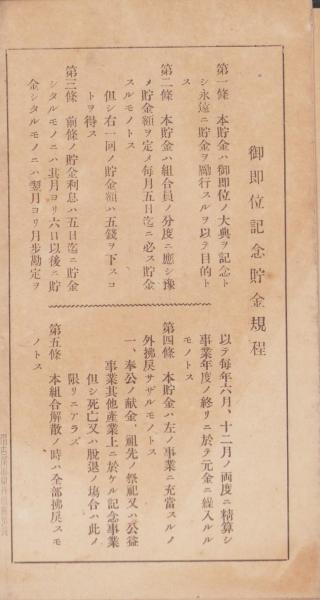 御即位記念貯金規程
第一條　本貯金ハ御即位ノ大典ヲ記念ト
シ永遠ニ貯金ヲ勵行スルヲ以テ目的ト
ス
第二條　本貯金ハ組合員ノ分度ニ應シ豫
メ貯金額ヲ定メ毎月五日迄ニ必ス貯金
スルモノトス
但シ右一回ノ貯金額ハ五錢ヲ下スコ
トヲ得ス
第三條　前條ノ貯金利息ハ五日迄ニ貯金
シタルモノニハ其月ヨリ六日以後ニ貯
金シタルモノニハ翌月ヨリ月步勘定ヲ
以テ每年六月、十二月ノ兩度ニ精算シ
事業年度ノ終リニ於テ元金ニ繰入ルル
モノトス
第四條　本貯金ハ左ノ事業ニ充當スルノ
外拂戾サザルモノトス
一、奉公ノ献金、祖先ノ祭祀又ハ公益
事業其他產業上ニ於ケル記念事業
但シ死亡又ハ脫退ノ塲合ハ此ノ
限リニアラズ
第五條　本組合解散ノ時ハ全部拂戾スモ
ノトス